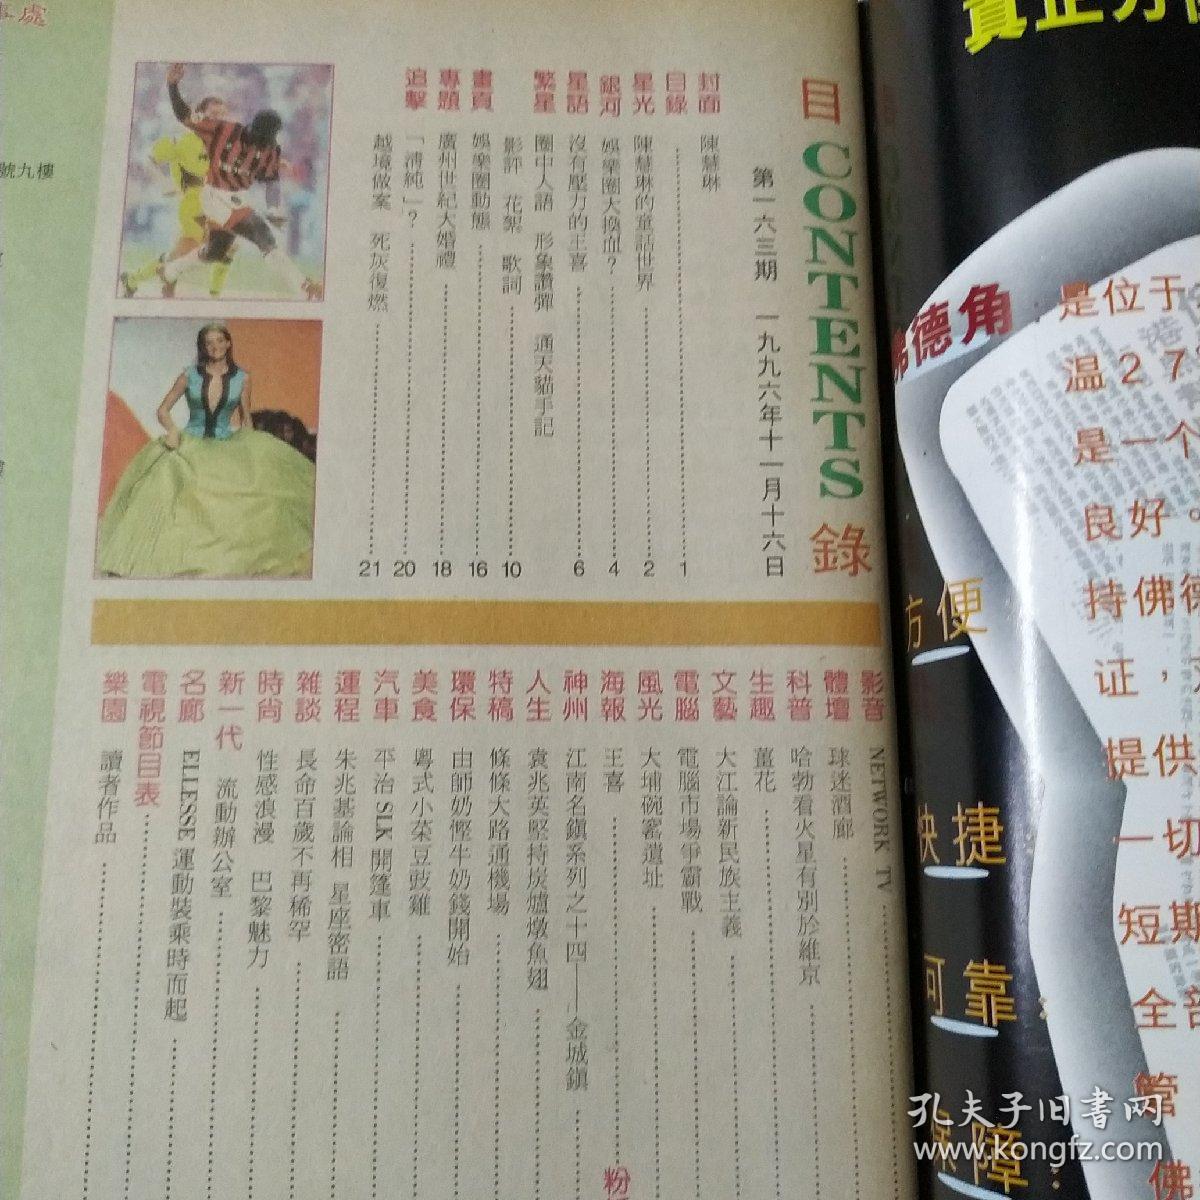 目 CONTENTS 錄
第一六三期 一九九六年十一月十六日
封面 陳慧琳
目錄 1
星光 陳慧琳的童話世界 2
銀河 娛樂圈大換血？ 4
星語 沒有壓力的王喜 6
繁星 圈中人語 形象讚彈 通天貓手記
影評 花絮 歌詞 10
畫頁 娛樂圈動態 16
專題 廣州世紀大婚禮 18
追擊 「清純」？ 20
越境做案 死灰復燃 21
影音 NETWORK TV
體壇 球迷酒廊
科普 哈勃看火星有別於維京
生趣 薑花
文藝 大江論新民族主義
電腦 電腦市場爭霸戰
風光 大埔碗窰遺址
海報 王喜
神州 江南名鎮系列之十四——金城鎮
人生 袁兆英堅持炭爐燉魚翅
特稿 條條大路通機場
環保 由師奶慳牛奶錢開始
美食 粵式小菜豆豉雞
汽車 平治 SLK 開篷車
運程 朱兆基論相 星座密語
雜談 長命百歲不再稀罕
時尚 性感浪漫 巴黎魅力
新一代 流動辦公室
名廊 ELLESSE 運動裝乘時而起
電視節目表
樂園 讀者作品
粉
處
號九樓
真正方便
佛德角 是位于
温27
是一个
良好。
持佛德
证，
提供
一切
短期
全部
管
佛
方便
快捷：
可靠：
保障：
孔夫子旧书网
www.kongfz.com